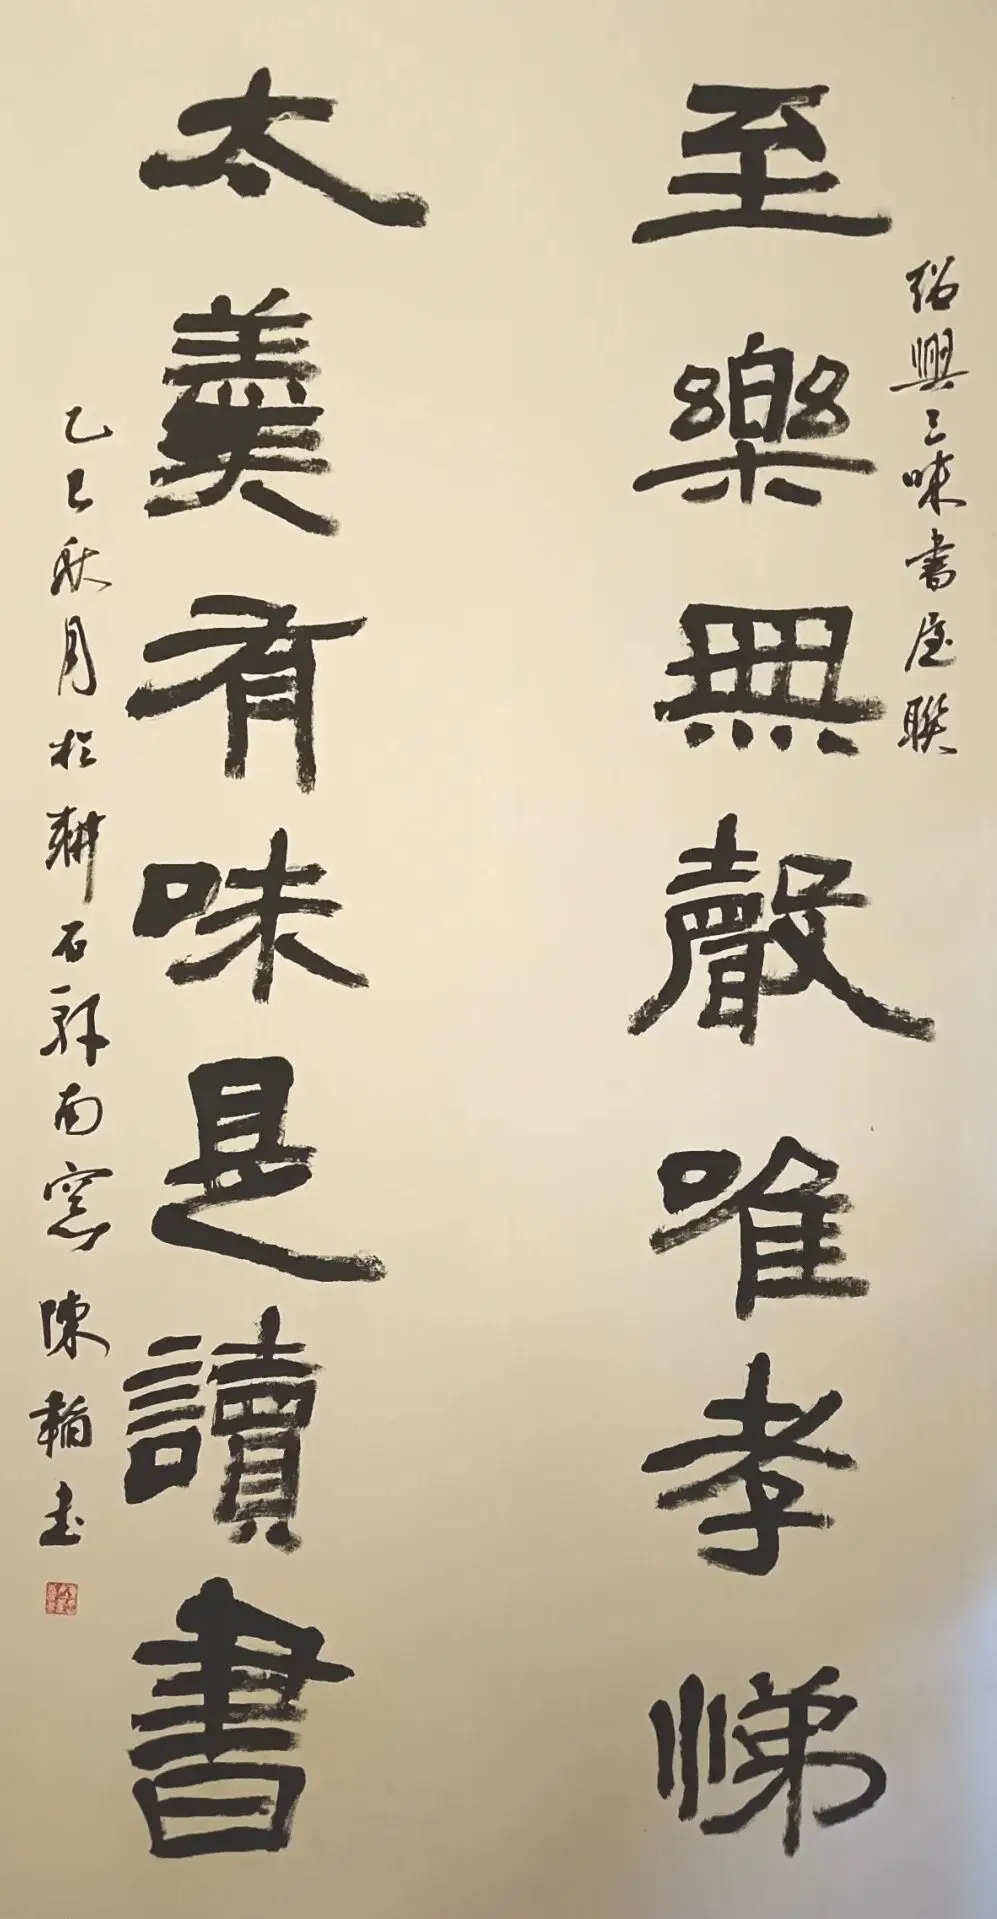 紹興三味書屋聯
至樂無聲唯孝悌
太羹有味是讀書
乙巳秋月於耕石軒南窓陳書